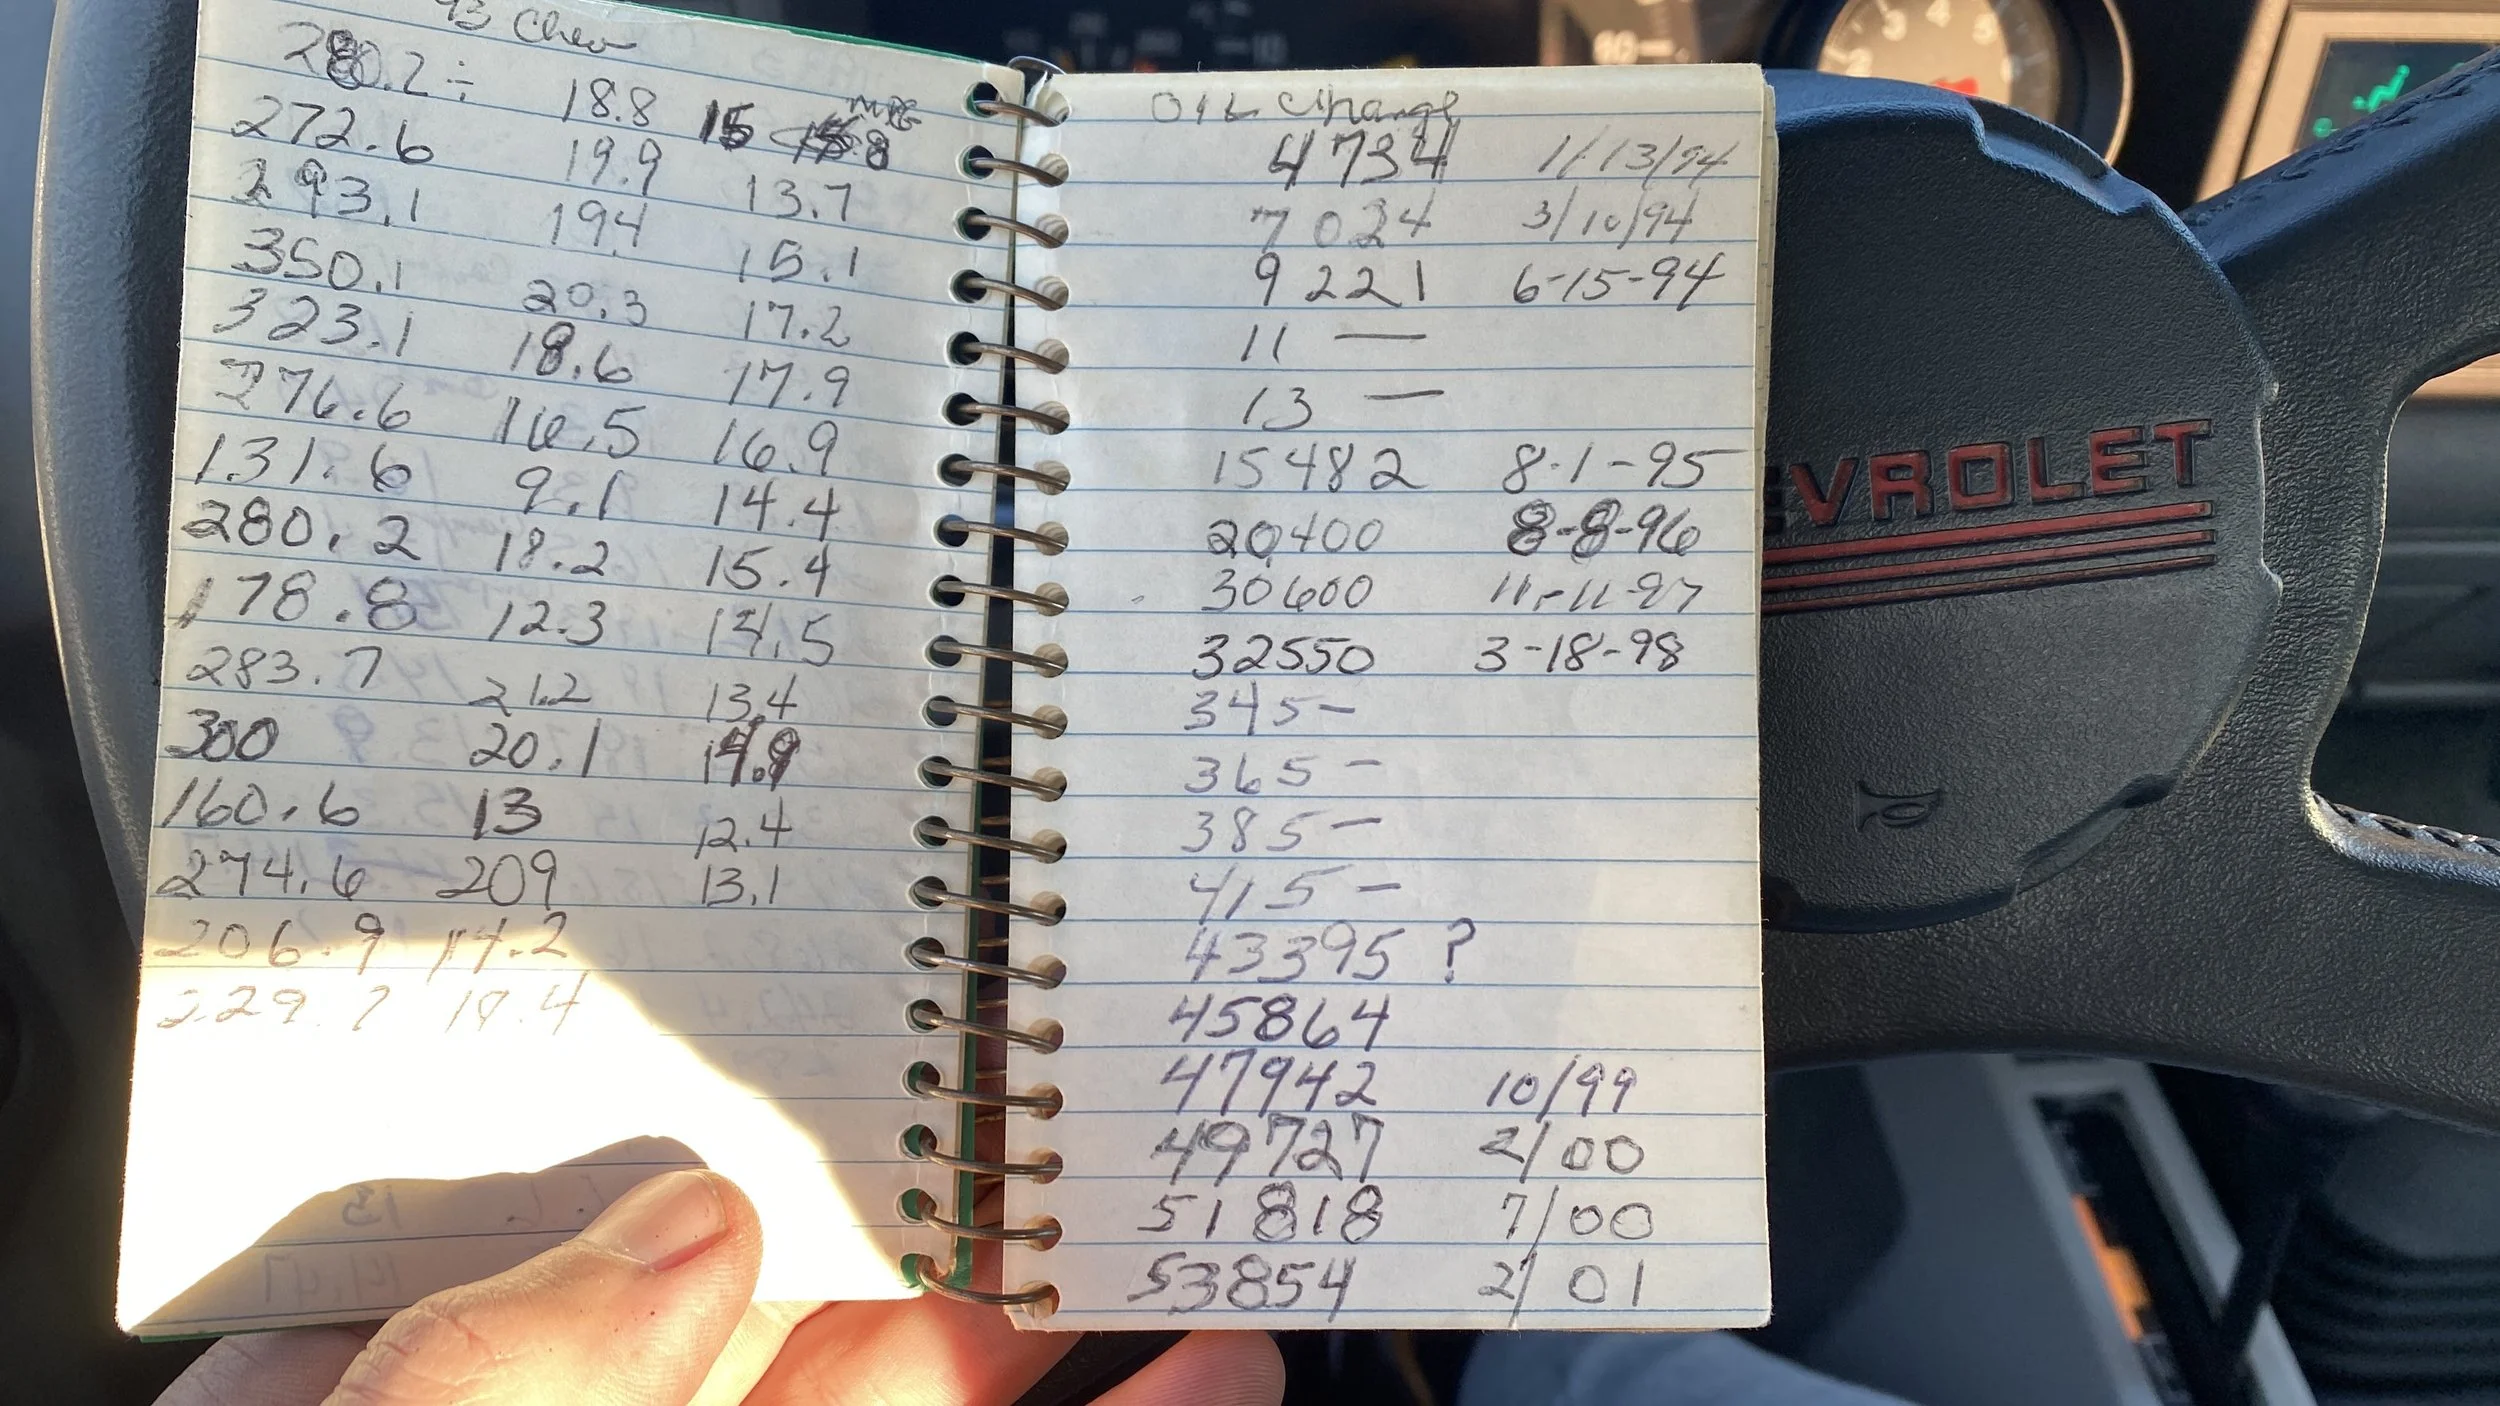 93 Chev
280.2 ÷ 18.8 15 MPG
272.6 19.9 13.7
293.1 194 15.1
350.1 20.3 17.2
323.1 18.6 17.9
276.6 16.5 16.9
131.6 9.1 14.4
280.2 18.2 15.4
178.8 12.3 14.5
283.7 21.2 13.4
300 20.1 14.9
160.6 13 12.4
274.6 209 13.1
206.9 14.2
229.7 18.4
OIL Change
4734 1/13/94
7024 3/10/94
9221 6-15-94
11 —
13 —
15482 8-1-95
20,400 8-8-96
30600 11-11-97
32550 3-18-98
345-
365-
385-
415-
43395 ?
45864
47942 10/99
49727 2/00
51818 7/00
53854 2/01
EVROLET